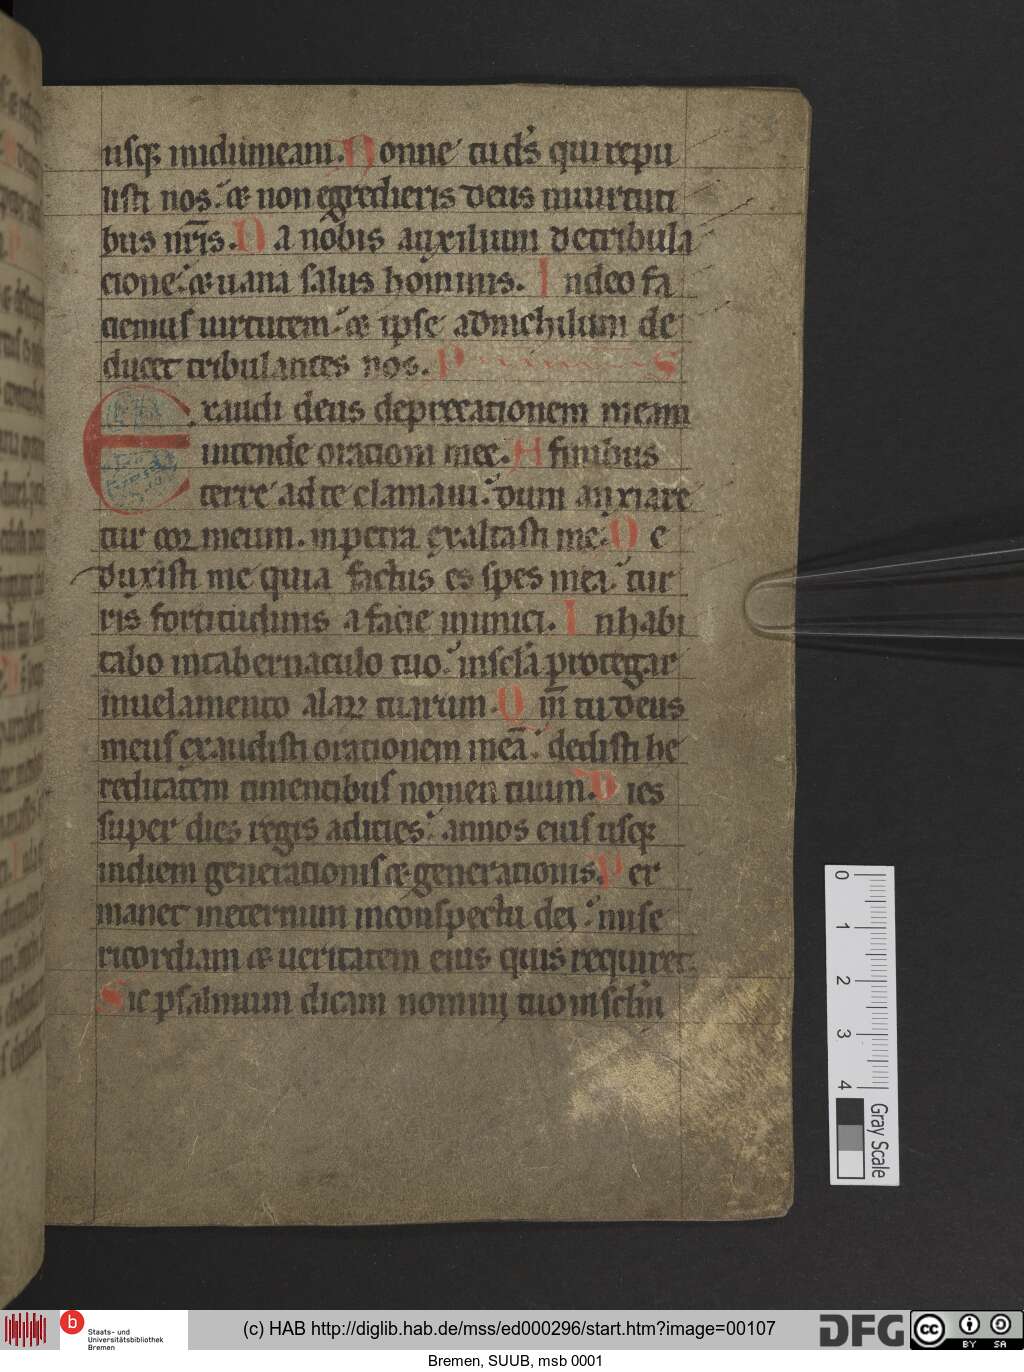 usq; inidumeam. Nonne tu ds qui repu
listi nos. & non egredieris deus inuirtuti
bus nris. Da nobis auxilium detribula
cione. & uana salus hominis. Indeo fa
ciemus uirtutem. & ipse adnichilum de
ducet tribulantes nos. P S
Exaudi deus deprecationem meam
intende orationi mee. A finibus
terre ad te clamaui. dum anxiare
tur cor meum. inpetra exaltasti me. De
duxisti me quia factus es spes mea. tur
ris fortitudinis a facie inimici. Inhabi
tabo intabernaculo tuo. inscla protegar
inuelamento alar tuarum. Qm tu deus
meus exaudisti orationem mea. dedisti he
reditatem timentibus nomen tuum. Dies
super dies regis adicies. annos eius usq;
indiem generationis & generationis. Per
manet ineternum inconspectu dei. mise
ricordiam & ueritatem eius quis requiret.
Sic psalmum dicam nomini tuo insclm
0 1 2 3 4
Gray Scale
b Staats- und
Universitätsbibliothek
Bremen
(c) HAB http://diglib.hab.de/mss/ed000296/start.htm?image=00107
DFG
cc BY SA
Bremen, SUUB, msb 0001